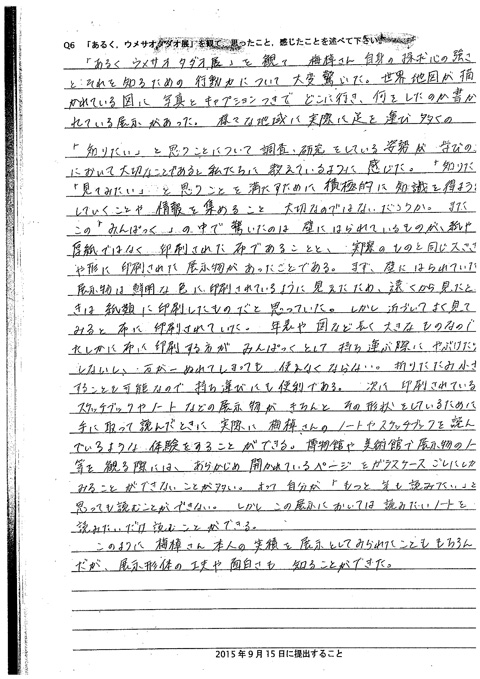 Q6 「あるく，ウメサオタダオ展」を観て，思ったこと，感じたことを述べて下さい
「あるく ウメサオタダオ展」を観て 梅棹さん自身の探求心の強さ
とそれを知るための行動力について大変驚いた。世界地図が描
かれている図に写真とキャプションつきで どこに行き、何をしたのか書か
れている展示があった。様々な地域に実際に足を運び多くの
「知りたい」と思うことについて調査・研究をしている姿勢が 学びの
において大切なことであると私たちに教えているように感じた。「知りた
「見てみたい」と思うことを満たすために積極的に知識を得よう
していくことや情報を集めること 大切なのではないだろうか。また
この「みんぱっく」の中で驚いたのは 壁にはられているものが、紙や
厚紙ではなく 印刷された布であることと、実際のものと同じ大きさ
や形に印刷された展示物があったことである。まず、壁にはられていた
展示物は鮮明な色に印刷されているように見えたため、遠くから見たと
きは紙類に印刷したものだと思っていた。しかし近づいてよく見て
みると布に印刷されていた。年表や図など長く大きなものなので
たしかに布に印刷する方が みんぱっくとして 持ち運ぶ際に やぶけたり
しないし、万が一ぬれてしまっても 使えなくならない。折りたたみ小さ
することも可能なので 持ち運びにも便利である。次に 印刷されている
スケッチブックやノートなどの展示物が きちんと その形状をしているために
手に取って読んだときに 実際に梅棹さんのノートやスケッチブックを読ん
でいるような 体験をすることができる。博物館や美術館で展示物のノー
等を観る際には、あらかじめ開かれているページをガラスケースごしにしか
みることができないことが多い。よって自分が「もっと先も読みたい」と
思っても読むことができない。しかし この展示においては 読みたいノートを
読みたいだけ読むことができる。
このように 梅棹さん本人の実績を展示としてみられたことももちろん
だが、展示形体の工夫や面白さも 知ることができた。
2015年9月15日に提出すること